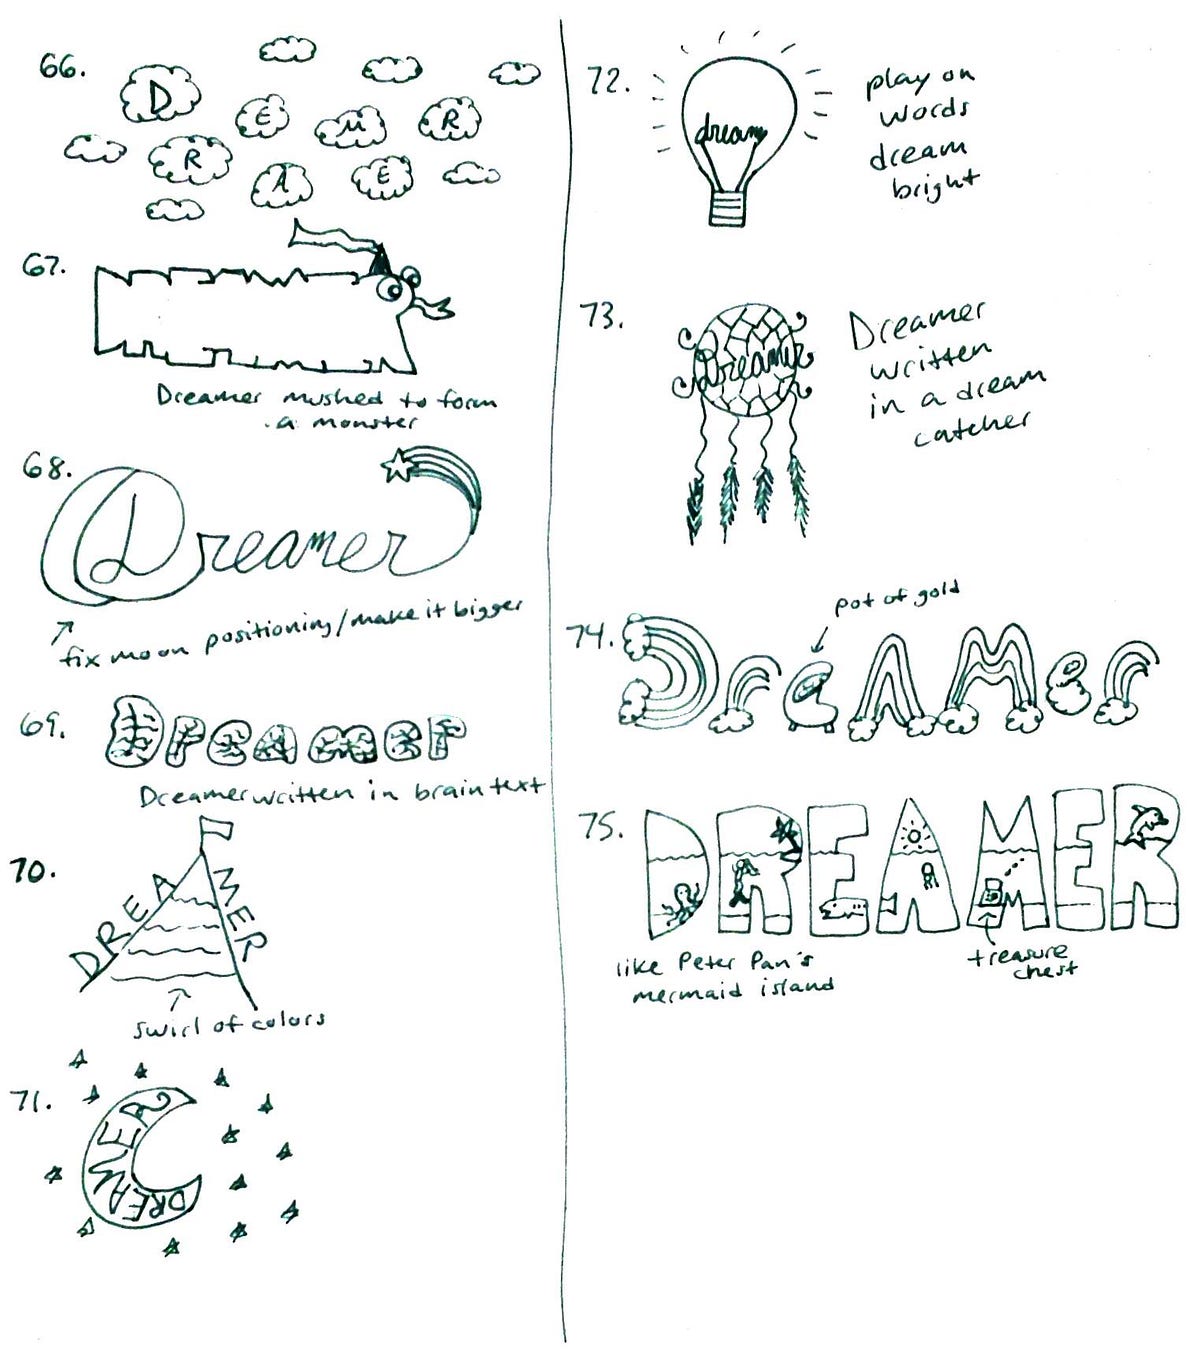 66.
D E M R
R A E
67.
Dreamer mushed to form
a monster
68.
Dreamer
fix moon positioning/make it bigger
69.
Dreamer
Dreamer written in brain text
70.
DREA MER
swirl of colors
71.
DREAMER
72.
dream
play on
words
dream
bright
73.
Dreamer
Dreamer
written
in a dream
catcher
74.
pot of gold
DreAMer
75.
DREAMER
like Peter Pan's
mermaid island
treasure
chest